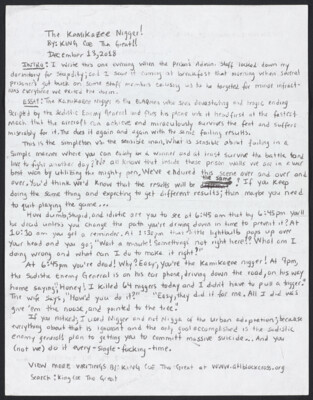 The Kamikazee Nigger!
By: KING Coe The Great!!
December 13, 2018
INTRO: I wrote this one evening when the Prison Admin Staff locked down my
dormitory for Stupidity; and I saw it coming at breakfast that morning when several
prisoners got buck on some staff members causing us to be targeted for minor infract-
ions everyone was
ESSAY: The Kamikazee Nigga is the who sees devastating and tragic ending
scripted by the Sadistic Enemy General and flies his plane into it headfirst at the fastest
mach that the aircraft can achieve and miraculously survives the feat and suffers
miserably for it. Then does it again and again with the same failing results.
This is the simpleton vs. the sensible man. What is sensible about failing in a
simple mission where you can easily be a winner and at most survive the battle, and
live to fight another day? We all know that inside these prison walls we are in a war
best won by utilizing the mighty pen. We've endured this scene over and over and
ever. You'd think we'd know that the results will be the same! If you keep
doing the same thing and expecting to get different results; than maybe you need
to quit playing the game...
How dumb, stupid, and idiotic are you to see at 6:45 am that by 6:45 pm you'll
be dead unless you change the path you're driving down in time to prevent it? At
10:30 am you get a reminder. At 1:30 pm that little lightbulb pops up over
your head and you go; "Wait a minute! Something's not right here!? What am I
doing wrong and what can I do to make it right?"
At 6:45 pm you're dead! Why? Easy, you're the Kamikazee nigger! At 7pm,
the Sadistic Enemy General is on his car phone, driving down the road, on his way
home saying, "Honey! I killed 64 niggers today and I didn't have to pull a trigger."
The wife says, "How'd you do it?" "Easy, they did it for me. All I did was
give 'em the noose, and pointed to the tree."
If you noticed, I used Nigger and not Nigga of the Urban adaptation; because
everything about that is ignorant and the only goal accomplished is the sadistic
enemy generals plan to getting you to commit massive suicide... And you
(not we) do it every-single-fucking-time.
VIEW MORE WRITINGS BY: KING Coe The Great at www.
Search: King Coe The Great